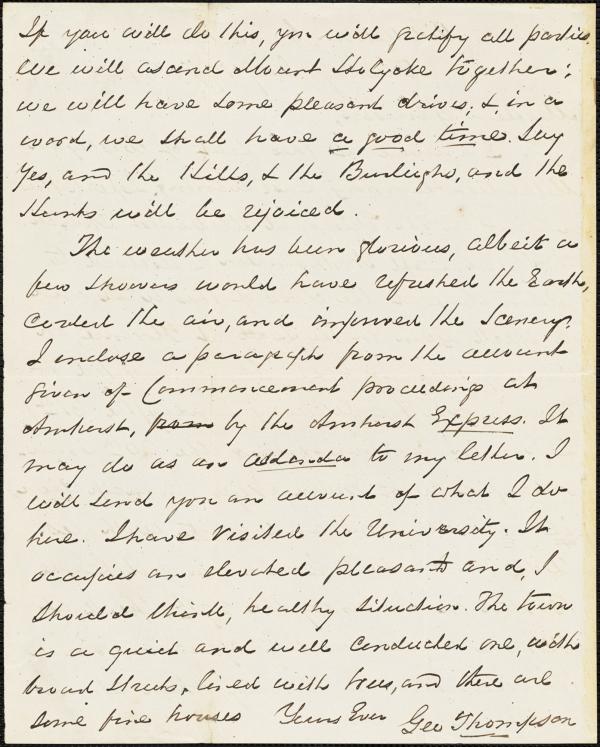 If you will do this, you will gratify all parties.
We will ascend Mount Holyoke together;
we will have some pleasant drives; &, in a
word, we shall have a good time. Say
Yes, and the Hills, & the Burleighs, and the
Hunts will be rejoiced.
The weather has been glorious, albeit a
few showers would have refreshed the Earth,
cooled the air, and improved the Scenery.
I enclose a paragraph from the account
given of Commencement proceedings at
Amherst, from by the Amherst Express. It
may do as an addenda to my letter. I
will send you an account of what I do
here. I have visited the University. It
occupies an elevated pleasant and, I
should think, healthy situation. The town
is a quiet and well conducted one, with
broad Streets, lined with trees, and there are
some fine houses Yours Ever Geo Thompson